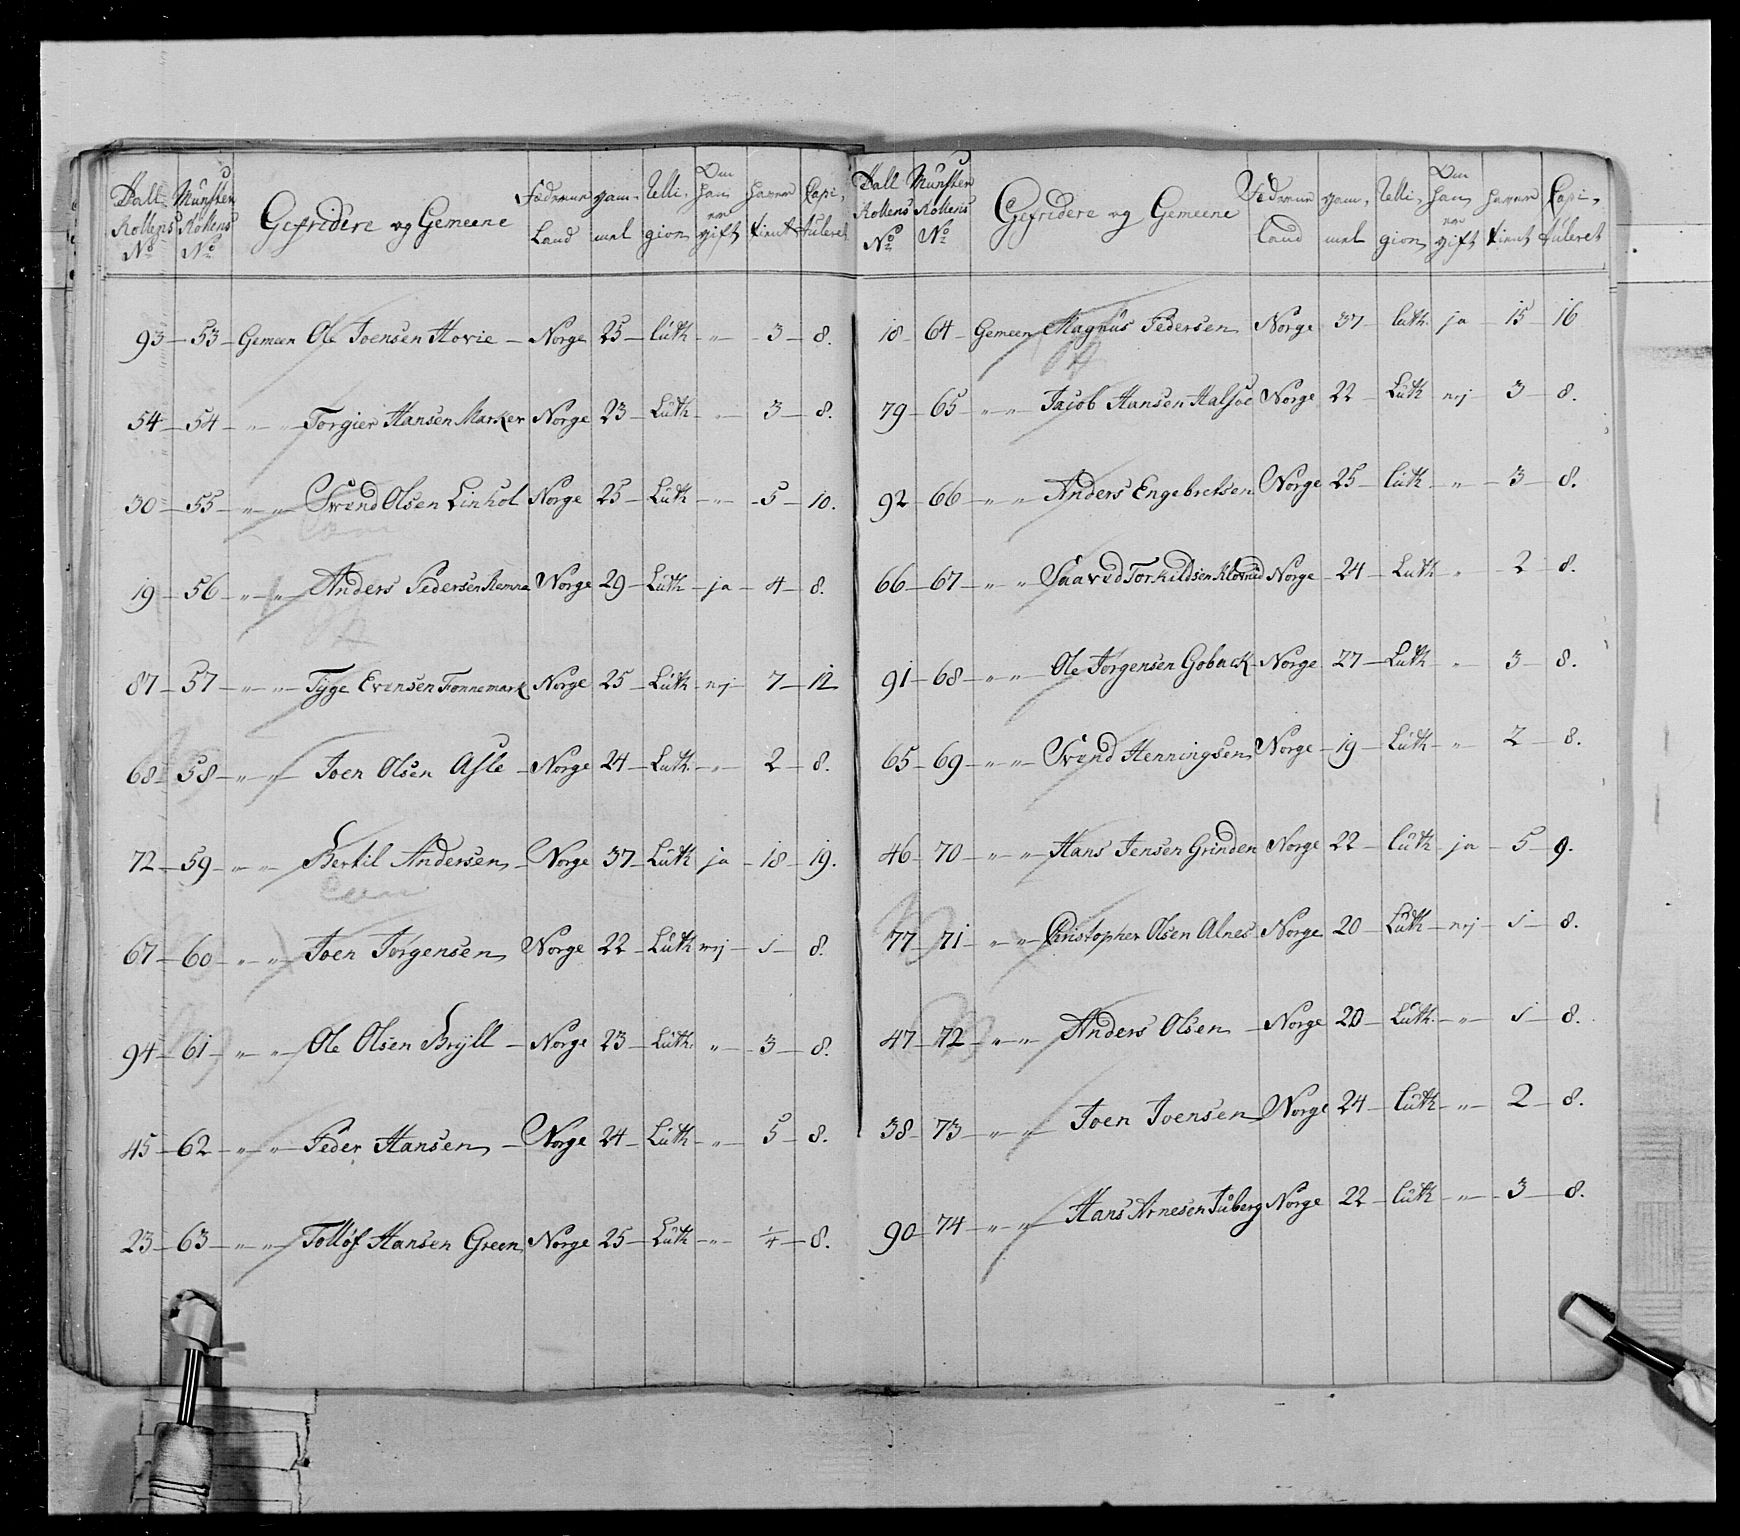 Rollens No Munster Rollens No Gefridere og Gemeene Land gam- mel Relli- gion Om han er gift haver tient Capi- tuleret
93 - 53 - Gemeen Ole Joensen Hovie - Norge 25 - Luth - " - 3 - 8.
54 - 54 - " " - Torgier Hansen Marker Norge 23 - Luth - " - 3 - 8.
30 - 55 - " " - Svend Olsen Linhol Norge 25 - Luth - " - 5 - 10.
19 - 56 - " " - Anders Pedersen Norge 29 - Luth - ja - 4 - 8.
87 - 57 - " " - Tÿge Evensen Tonnemark Norge 25 - Luth - nej - 7 - 12
68 - 58 - " " - Joen Olsen Asle - Norge 24 - Luth - " - 2 - 8.
72 - 59 - " " - Bertil Andersen - Norge 37 - Luth - ja - 18 - 19.
67 - 60 - " " - Joen Jörgensen Norge 22 - Luth - nej - 1 - 8.
94 - 61 - " " - Ole Olsen Brÿll - Norge 23 - Luth. - " - 3 - 8.
45 - 62 - " " - Peder Hansen - Norge 24 - Luth - " - 5 - 8.
23 - 63 - " " - Tolløf Hansen Green Norge 25 - Luth - " - 1/4 - 8.
Rollens No Munster Rollens No Gefridere og Gemeene Land gam- mel Relli- gion Om han er gift haver tient Capi- tuleret
18 - 64 - Gemeen Magnus Pedersen Norge 37 - luth. ja - 15 - 16
79 - 65 - " " - Jacob Hansen Norge 22 - Luth - nej - 3 - 8.
92 - 66 - " " - Anders Engebretsen Norge 25 - luth - " - 3 - 8.
66 - 67 - " " - Saaved Torkildsen Norge - 24 - Luth - " - 2 - 8.
91 - 68 - " " - Ole Jörgensen Goback - Norge - 27 - Luth - " - 3 - 8.
65 - 69 - " " - Svend Henningsen Norge - 19 - Luth - " - 2 - 8.
46 - 70 - " " - Hans Jensen Grinden Norge 22 - luth - ja - 5 - 9.
77 - 71 - " " - Christopher Olsen Alnes Norge 20 - Luth - nej - 1 - 8.
47 - 72 - " " - Anders Olsen - Norge 20 - Luth. - " - 1 - 8.
38 - 73 - " " - Joen Joensen Norge 24 - luth - " - 2 - 8.
90 - 74 - " " - Hans Arnesen Juberg Norge 22 - luth - " - 3 - 8.